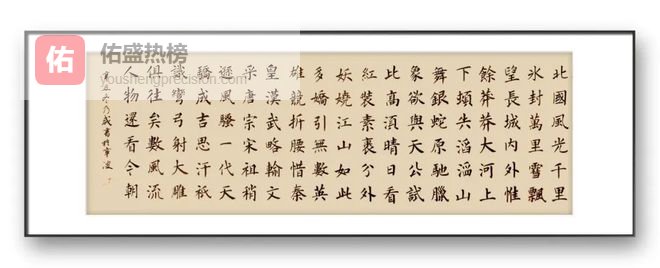 佑
佑盛热榜
youshengprecision.com
北國風光千里
氷封萬里雪飄
望長城内外惟
餘莽莽大河上
下頓失滔滔山
舞銀蛇原馳臘
象欲與天公試
比高須晴日看
紅裝素裹分外
妖嬈江山如此
多嬌引無數英
雄競折腰惜秦
皇漢武略輸文
采唐宗宋祖稍
遜風騷一代天
驕成吉思汗祇
識彎弓射大雕
俱往矣數風流
人物還看今朝